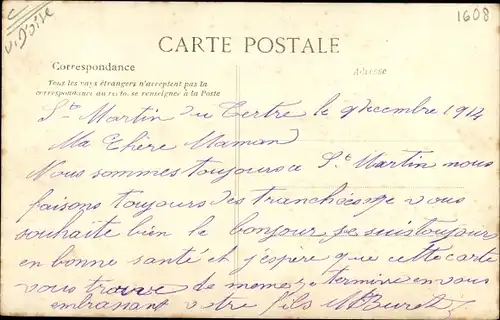 C
V. D'oise
1608
CARTE POSTALE
Correspondance
Adresse
Tous les pays étrangers n'acceptent pas la
correspondance au recto, se renseigner à la Poste
St Martin du Tertre le 9 decembre 1914
Ma Chère Maman
Nous sommes toujours a St Martin nous
faisons toujours des tranchées je vous
souhaite bien le bonjour je suis toujour
en bonne santé et j'espère que cette carte
vous trouve de meme je termine en vous
embrassant votre fils